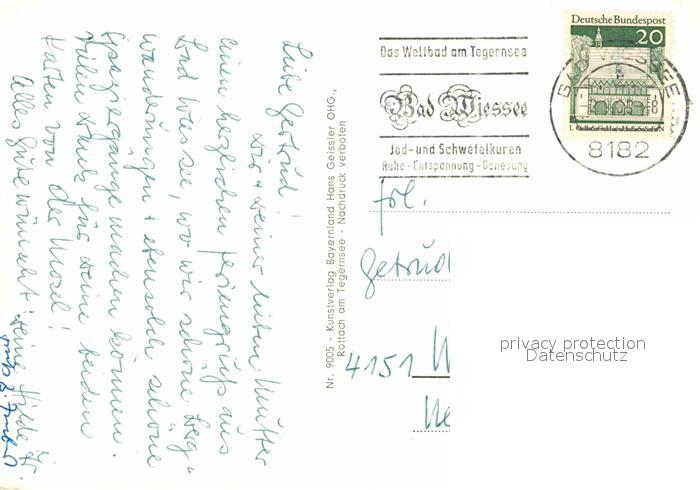 Liebe Gertrud!
Dir + Deiner lieben Mutter
einen herzlichen Feriengruß aus
Bad Wiessee, wo wir schöne Berg-
wanderungen + ebensolch schöne
Spaziergänge machen können.
Vielen Dank für Deine beiden
Karten von der Mosel!
Alles Gute wünscht Deine Hilde
Nr. 9005 - Kunstverlag Bayernland Hans Geissler OHG.,
Rottach am Tegernsee - Nachdruck verboten
Das Weltbad am Tegernsee
Bad Wiessee
Jod- und Schwefelkuren
Ruhe - Entspannung - Genesung
Deutsche Bundespost
20
BAD WIESSEE
8182
Frl.
Getrud
4151 W
privacy protection
Datenschutz